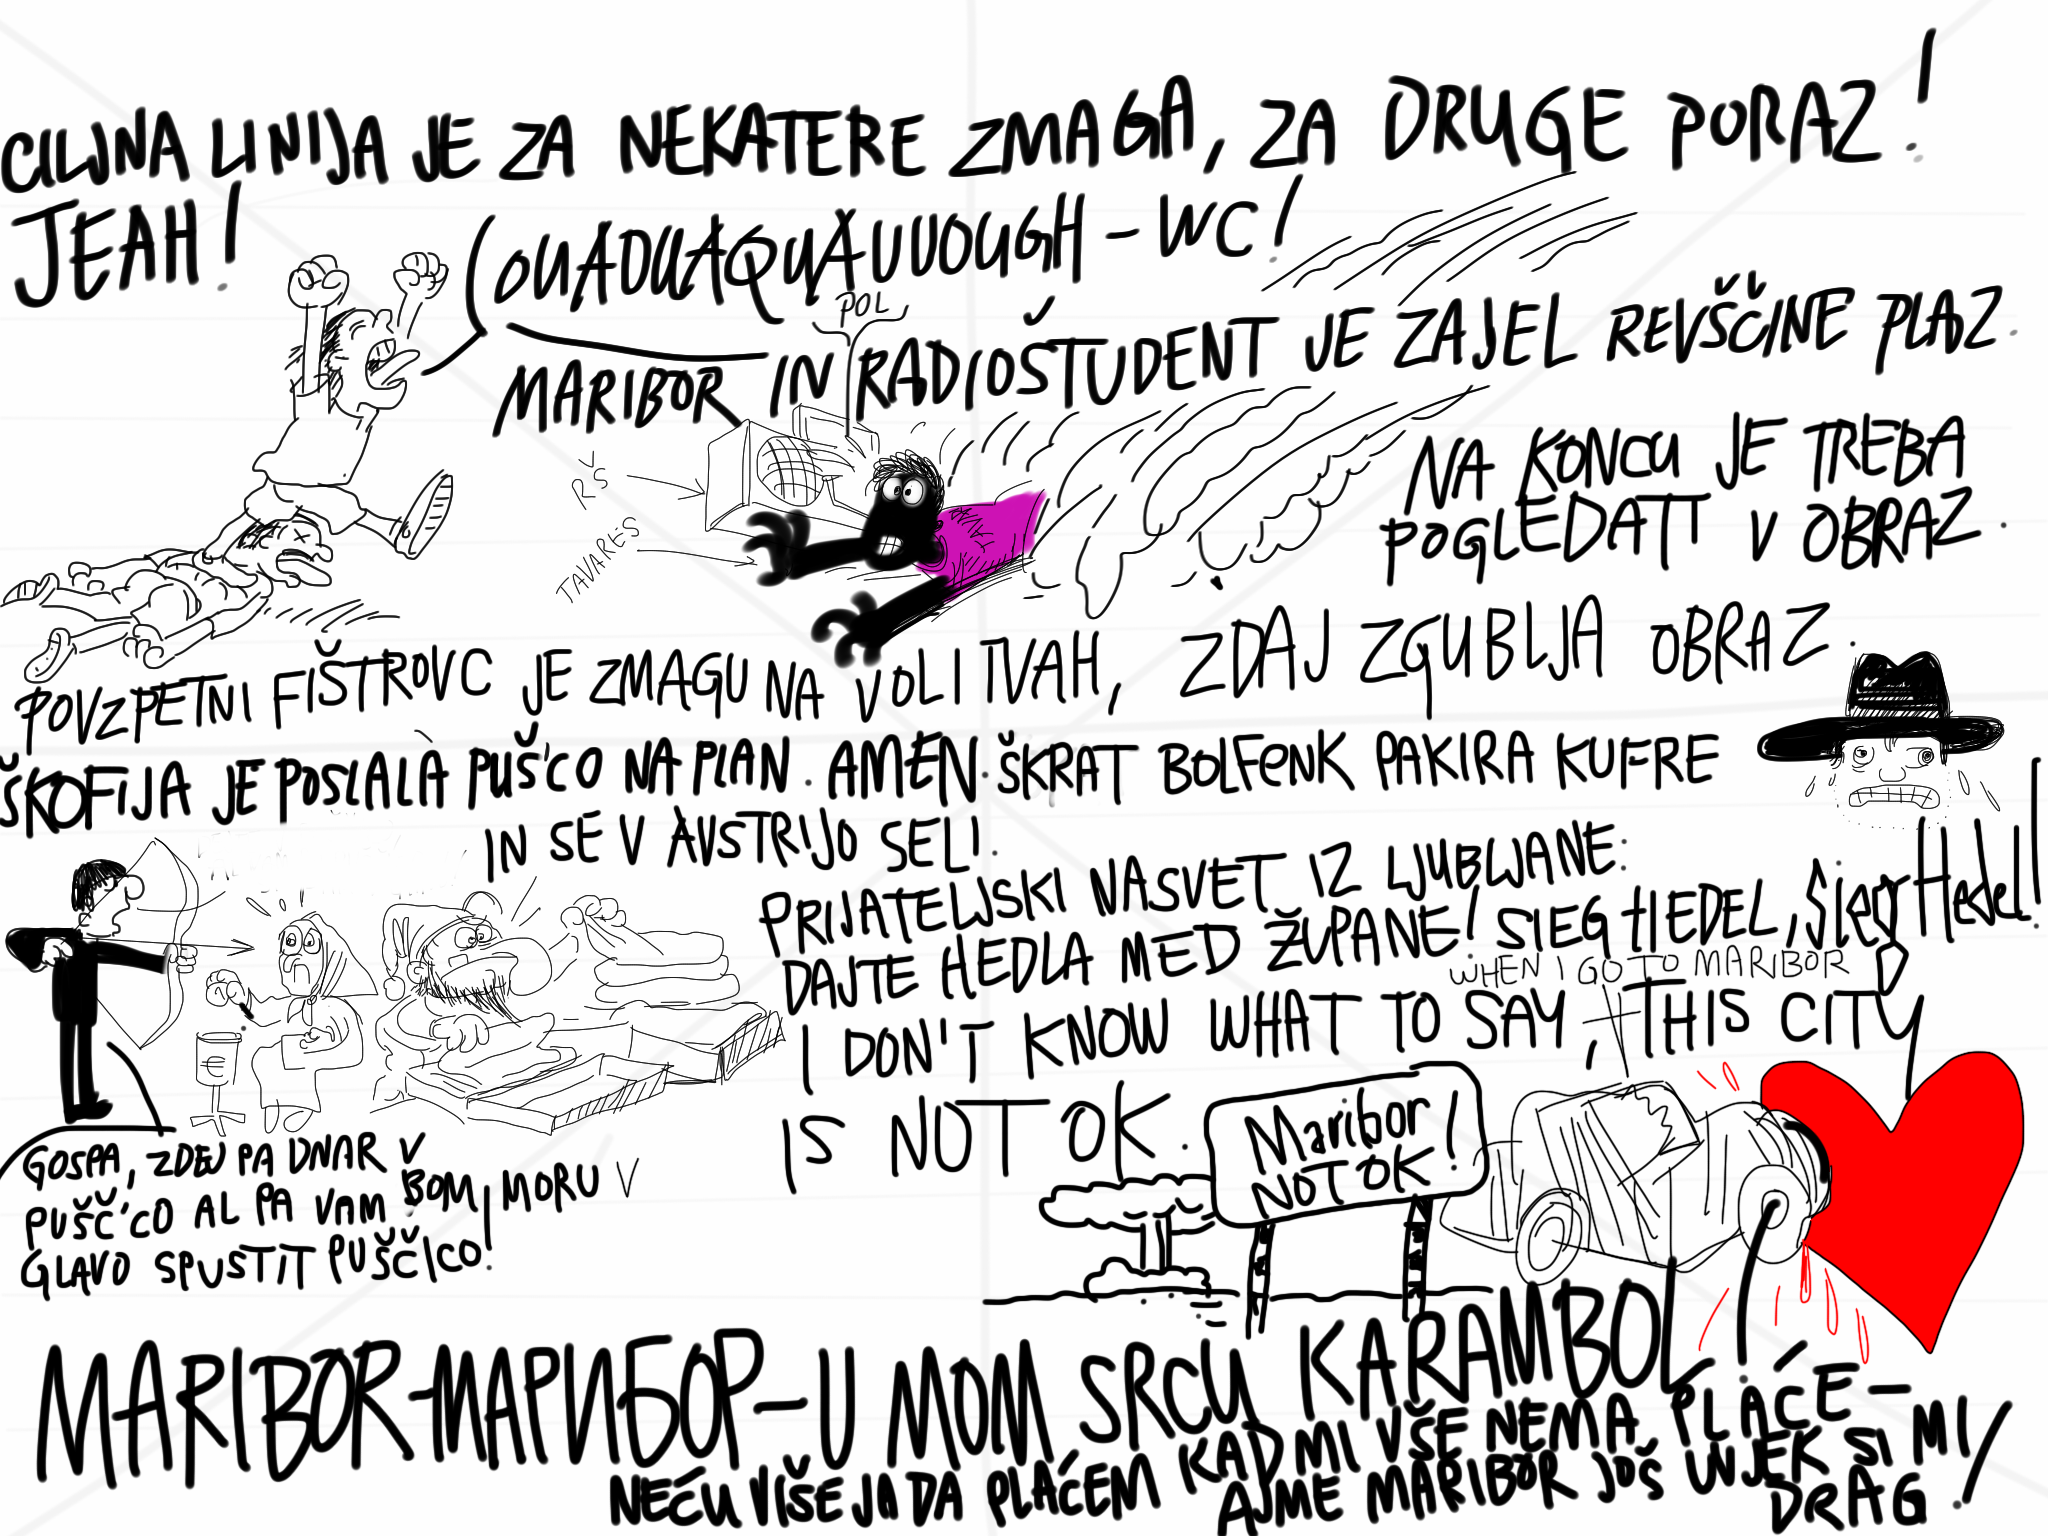 CILJNA LINIJA JE ZA NEKATERE ZMAGA, ZA DRUGE PORAZ!
JEAH!
OUADUAQUAUUUOUGH - WC!
POL
MARIBOR IN RADIOŠTUDENT JE ZAJEL REVŠČINE PLAZ.
RŠ
TAVARES
NA KONCU JE TREBA
POGLEDATI V OBRAZ.
POVZPETNI FIŠTROVC JE ZMAGU NA VOLITVAH, ZDAJ ZGUBLJA OBRAZ.
ŠKOFIJA JE POSLALA PUŠ'CO NA PLAN. AMEN. ŠKRAT BOLFENK PAKIRA KUFRE
IN SE V AVSTRIJO SELI.
PRIJATELJSKI NASVET IZ LJUBLJANE:
DAJTE HEDLA MED ŽUPANE! SIEG HEDEL, Sieg Hedel!
WHEN I GO TO MARIBOR
I DON'T KNOW WHAT TO SAY, THIS CITY
IS NOT OK.
Maribor
NOT OK!
€
GOSPA, ZDEJ PA DNAR V
PUŠČ'CO AL PA VAM BOM MORU V
GLAVO SPUSTIT PUŠČICO!
MARIBOR-МАРИБОР-U MOM SRCU KARAMBOL!
NEĆU VIŠE JA DA PLAĆEM KAD MI VŠE NEMA PLAĆE -
AJME MARIBOR JOŠ UVJEK SI MI
DRAG!